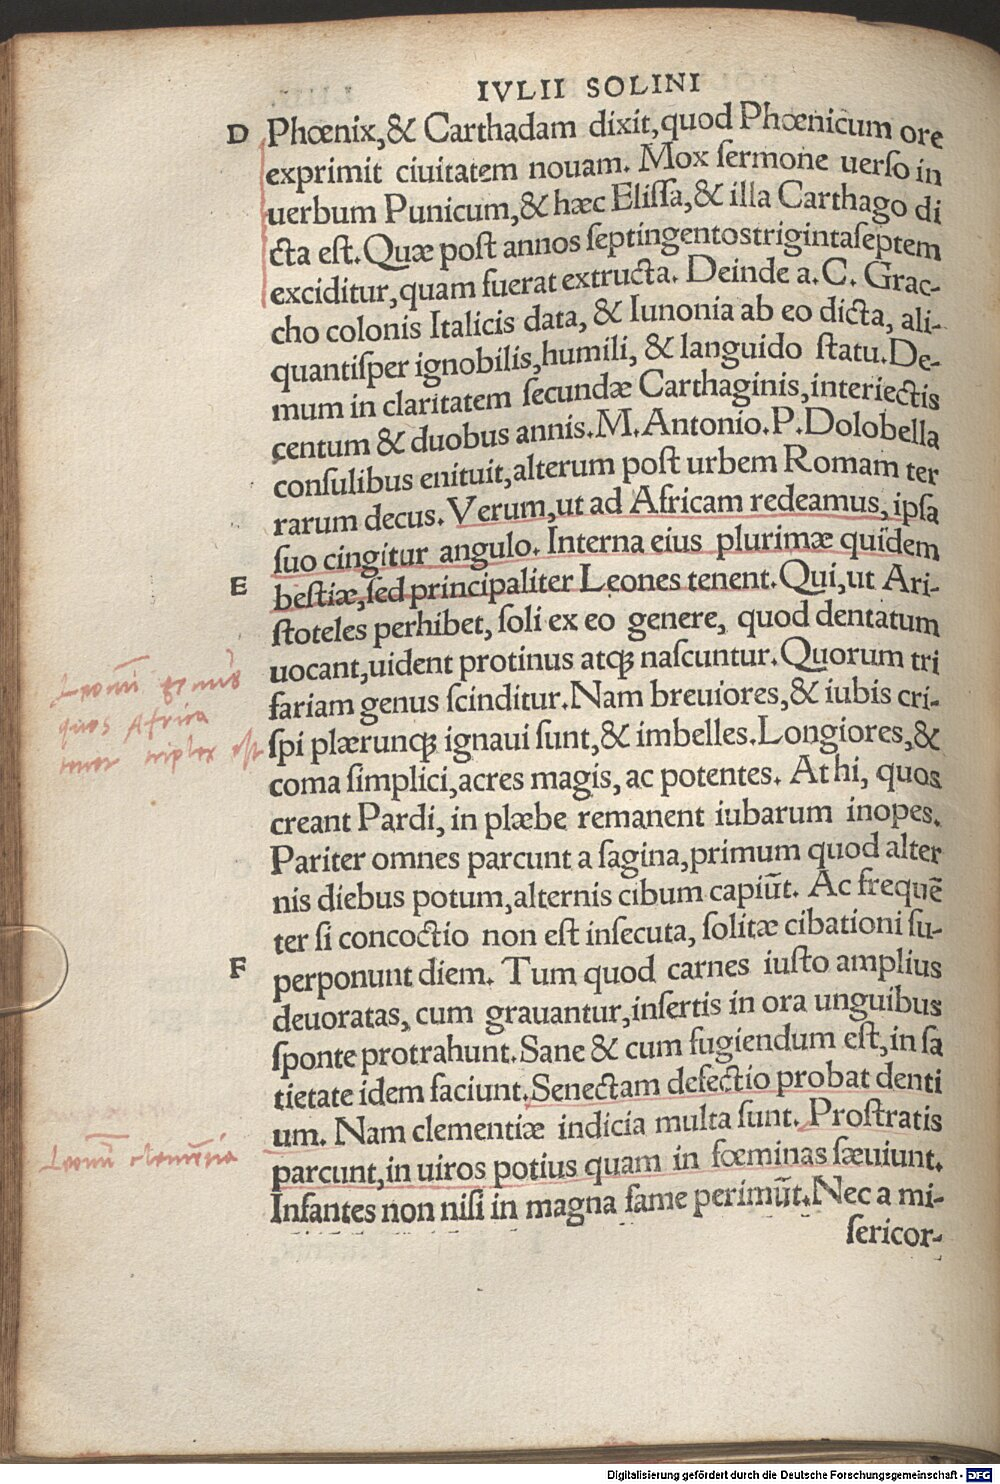 IVLII SOLINI
D Phœnix,& Carthadam dixit,quod Phœnicum ore
exprimit ciuitatem nouam. Mox ſermone uerſo in
uerbum Punicum,& hæc Eliſſa,& illa Carthago di
cta eſt. Quæ poſt annos ſeptingentostrigintaſeptem
exciditur,quam fuerat extructa. Deinde a.C. Grac-
cho colonis Italicis data, & Iunonia ab eo dicta, ali-
quantiſper ignobilis,humili, & languido ſtatu.De-
mum in claritatem ſecundæ Carthaginis,interiectis
centum & duobus annis.M.Antonio.P.Dolobella
conſulibus enituit,alterum poſt urbem Romam ter
rarum decus. Verum,ut ad Africam redeamus, ipſa
ſuo cingitur angulo. Interna eius plurimæ quidem
E beſtiæ,ſed principaliter Leones tenent.Qui,ut Ari-
ſtoteles perhibet, ſoli ex eo genere, quod dentatum
uocant,uident protinus atqꝫ naſcuntur.Quorum tri
fariam genus ſcinditur.Nam breuiores,& iubis cri-
ſpi plærunqꝫ ignaui ſunt,& imbelles.Longiores,&
coma ſimplici,acres magis, ac potentes. At hi, quos
creant Pardi, in plæbe remanent iubarum inopes.
Pariter omnes parcunt a ſagina,primum quod alter
nis diebus potum,alternis cibum capiūt. Ac frequē
ter ſi concoctio non eſt inſecuta, ſolitæ cibationi ſu-
F perponunt diem. Tum quod carnes iuſto amplius
deuoratas, cum grauantur,inſertis in ora unguibus
ſponte protrahunt.Sane & cum fugiendum eſt,in ſa
tietate idem faciunt.Senectam defectio probat denti
um. Nam clementiæ indicia multa ſunt. Proſtratis
parcunt,in uiros potius quam in fœminas ſæuiunt.
Infantes non niſi in magna fame perimūt.Nec a mi-
ſericor-
Leonū genus
quos Africa
tenet triplex est
Leonū clemētia
Digitalisierung gefördert durch die Deutsche Forschungsgemeinschaft - DFG